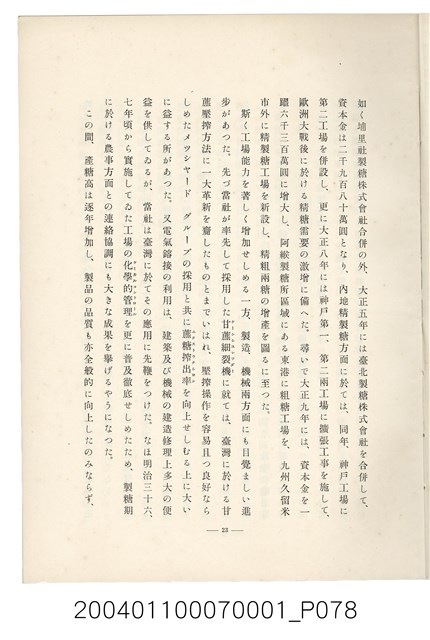 如く埔里社製糖株式會社合併の外、大正五年には臺北製糖株式會社を合併して、
資本金は二千九百八十萬圓となり、內地精製糖方面に於ては、同年、神戶工場に
第二工場を併設し、更に大正八年には神戶第一、第二兩工場に擴張工事を施して、
歐洲大戰後に於ける精糖需要の激增に備へた。尋いで大正九年には、資本金を一
躍六千三百萬圓に增大し、阿緱製糖所區域にある東港に粗糖工場を、九州久留米
市外に精製糖工場を新設し、精粗兩糖の增產を圖るに至つた。
斯く工場能力を著しく增加せしめる一方、製造、機械兩方面にも目覺ましい進
步があつた。先づ當社が率先して採用した甘蔗細裂機に就ては、臺灣に於ける甘
蔗壓搾方法に一大革新を齎したものとまでいはれ、壓搾操作を容易且つ良好なら
しめたメツシヤード グルーブの採用と共に蔗糖搾出率を向上せしむる上に大い
に益する所があつた。又電氣鎔接の利用は、建築及び機械の建造修理上多大の便
益を供してゐるが、當社は臺灣に於てその應用に先鞭をつけた。なほ明治三十六、
七年頃から實施してゐた工場の化學的管理を更に普及徹底せしめたため、製糖期
に於ける農事方面との連絡協調にも大きな成果を擧げるやうになつた。
この間、產糖高は逐年增加し、製品の品質も亦全般的に向上したのみならず、
— 23 —
200401100070001_P078